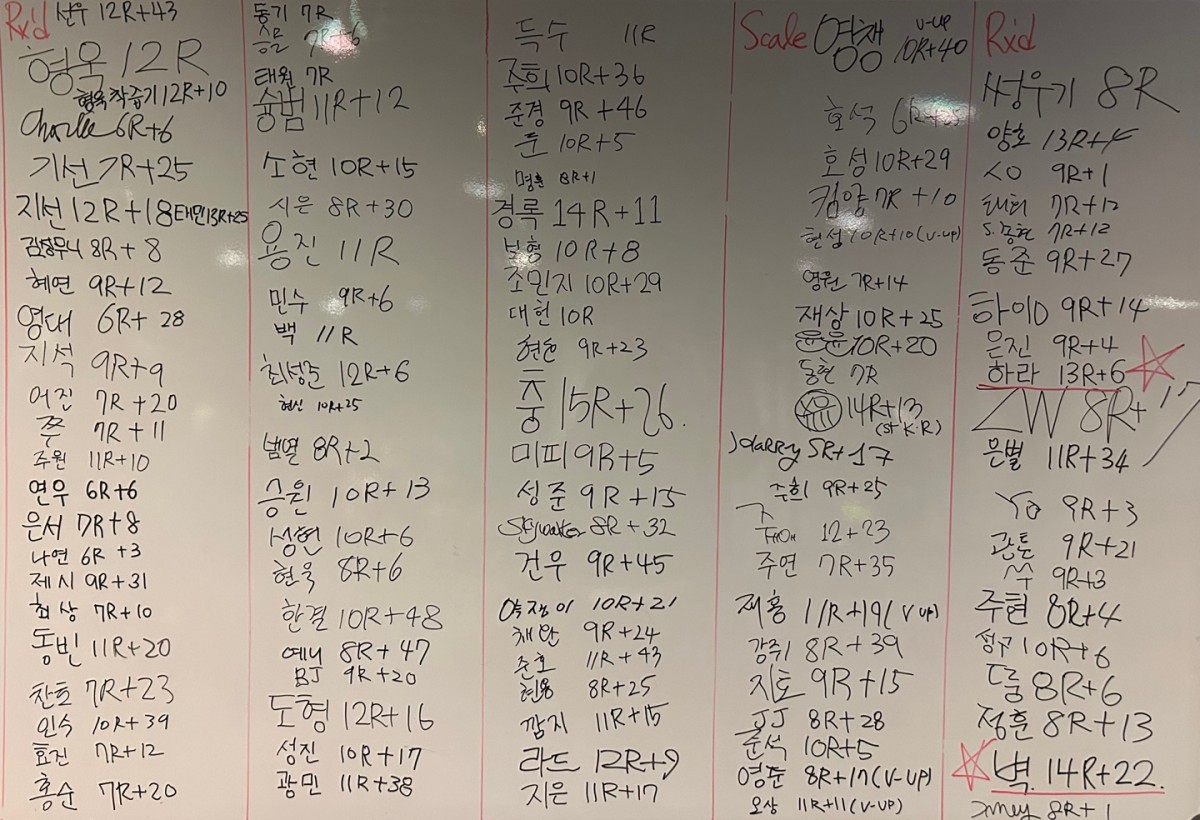 Rx'd
선우 12R+43
형욱 12R
형욱짝숨기 12R+10
Charlie 6R+6
기선 7R+25
지선 12R+18 태민 13R+25
8R+8
혜연 9R+12
영대 6R+28
지석 9R+9
어진 7R+20
쭌 7R+11
주원 11R+10
연우 6R+6
은서 7R+8
나연 6R+3
제시 9R+31
최상 7R+10
동빈 11R+20
찬호 7R+23
인수 10R+39
효진 7R+12
홍순 7R+20
동기 7R
승문 9R+6
태원 7R
슝범 11R+12
소현 10R+15
시은 8R+30
용진 11R
민수 9R+6
백 11R
최성준 12R+6
현신 10R+25
범열 8R+2
승원 10R+13
성현 10R+6
현욱 8R+6
한결 10R+48
예니 8R+47
BJ 9R+20
도형 12R+16
성진 10R+17
광민 11R+38
득수 11R
주희 10R+36
준경 9R+46
둔 10R+5
명훈 8R+1
경록 14R+11
보형 10R+8
조민지 10R+29
대헌 10R
현준 9R+23
충 15R+26
미피 9R+5
성준 9R+15
8R+32
건우 9R+45
약쟁이 10R+21
채안 9R+24
준호 11R+43
현용 8R+25
깜지 11R+15
라드 12R+9
지은 11R+17
Scale
영챙 10R+40 v-up
호석
호성 10R+29
킴양 7R+10
현섭 10R+10 (v-up)
영원 7R+14
재상 10R+25
윤윤 10R+20
동현 7R
14R+13
(st K.R)
Harry 5R+17
주희 9R+25
12+23
주연 7R+35
재홍 11R+19 (v up)
감쥐 8R+39
지토 9R+15
JJ 8R+28
윤석 10R+5
영준 8R+17 (v-up)
오상 11R+11 (v-up)
Rx'd
쌍우기 8R
양호 13R+4
LO 9R+1
태터 7R+12
S.동현 7R+12
동준 9R+27
하이D 9R+14
은진 9R+4
하라 13R+6
ZW 8R+17
은별 11R+34
Yo 9R+3
관톤 9R+21
쑤 9R+3
주현 8R+4
성구 10R+6
두룸 8R+6
정훈 8R+13
벽 14R+22
8R+1